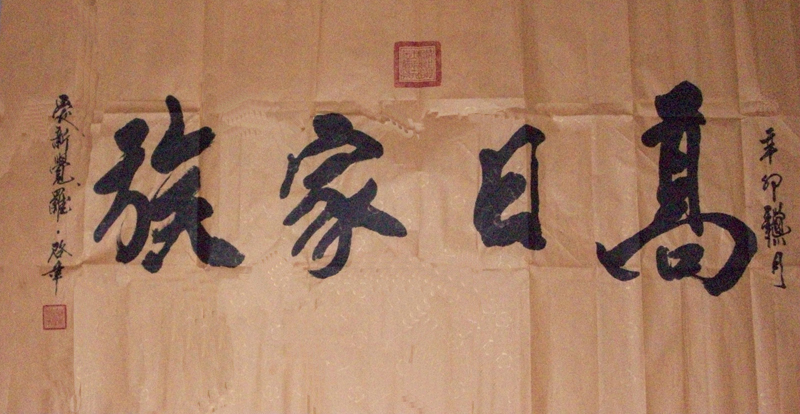 辛卯臘月
高日家族
愛新覺羅·啟